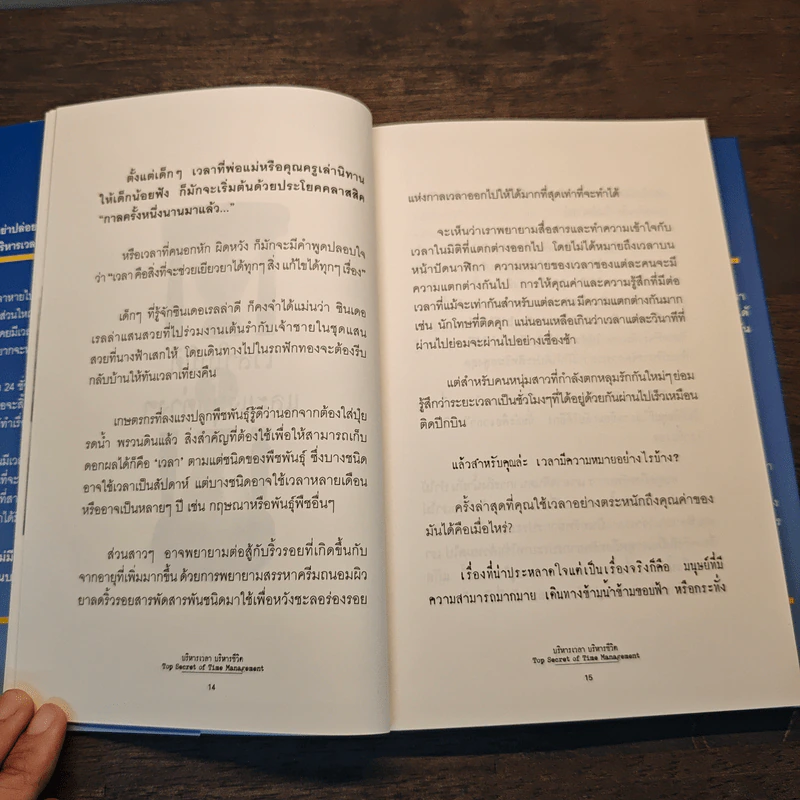 ตั้งแต่เด็กๆ เวลาที่พ่อแม่หรือคุณครูเล่านิทาน
ให้เด็กน้อยฟัง ก็มักจะเริ่มต้นด้วยประโยคคลาสสิค
"กาลครั้งหนึ่งนานมาแล้ว..."
หรือเวลาที่คนอกหัก ผิดหวัง ก็มักจะมีคำพูดปลอบใจ
ว่า "เวลา คือสิ่งที่จะช่วยเยียวยาได้ทุกๆ สิ่ง แก้ไขได้ทุกๆ เรื่อง"
เด็กๆ ที่รู้จักซินเดอเรลล่าดี ก็คงจำได้แม่นว่า ซินเดอ
เรลล่าแสนสวยที่ไปร่วมงานเต้นรำกับเจ้าชายในชุดแสน
สวยที่นางฟ้าเสกให้ โดยเดินทางไปในรถฟักทองจะต้องรีบ
กลับบ้านให้ทันเวลาเที่ยงคืน
เกษตรกรที่ลงแรงปลูกพืชพันธุ์รู้ดีว่านอกจากต้องใส่ปุ๋ย
รดน้ำ พรวนดินแล้ว สิ่งสำคัญที่ต้องใช้เพื่อให้สามารถเก็บ
ดอกผลได้ก็คือ 'เวลา' ตามแต่ชนิดของพืชพันธุ์ ซึ่งบางชนิด
อาจใช้เวลาเป็นสัปดาห์ แต่บางชนิดอาจใช้เวลาหลายเดือน
หรืออาจเป็นหลายๆ ปี เช่น กฤษณาหรือพันธุ์พืชอื่นๆ
ส่วนสาวๆ อาจพยายามต่อสู้กับริ้วรอยที่เกิดขึ้นกับ
จากอายุที่เพิ่มมากขึ้น ด้วยการพยายามสรรหาครีมถนอมผิว
ยาลดริ้วรอยสารพัดสารพันชนิดมาใช้เพื่อหวังชะลอร่องรอย
บริหารเวลา บริหารชีวิต
Top Secret of Time Management
14
แห่งกาลเวลาออกไปให้ได้มากที่สุดเท่าที่จะทำได้
จะเห็นว่าเราพยายามสื่อสารและทำความเข้าใจกับ
เวลาในมิติที่แตกต่างออกไป โดยไม่ได้หมายถึงเวลาบน
หน้าปัดนาฬิกา ความหมายของเวลาของแต่ละคนจะมี
ความแตกต่างกันไป การให้คุณค่าและความรู้สึกที่มีต่อ
เวลาที่แม้จะเท่ากันสำหรับแต่ละคน มีความแตกต่างกันมาก
เช่น นักโทษที่ติดคุก แน่นอนเหลือเกินว่าเวลาแต่ละวินาทีที่
ผ่านไปย่อมจะผ่านไปอย่างเชื่องช้า
แต่สำหรับคนหนุ่มสาวที่กำลังตกหลุมรักกันใหม่ๆ ย่อม
รู้สึกว่าระยะเวลาเป็นชั่วโมงๆ ที่ได้อยู่ด้วยกันผ่านไปเร็วเหมือน
ติดปีกบิน
แล้วสำหรับคุณล่ะ เวลามีความหมายอย่างไรบ้าง?
ครั้งล่าสุดที่คุณใช้เวลาอย่างตระหนักถึงคุณค่าของ
มันได้คือเมื่อไหร่?
เรื่องที่น่าประหลาดใจแต่เป็นเรื่องจริงก็คือ มนุษย์ที่มี
ความสามารถมากมาย เดินทางข้ามน้ำข้ามขอบฟ้า หรือกระทั่ง
บริหารเวลา บริหารชีวิต
Top Secret of Time Management
15